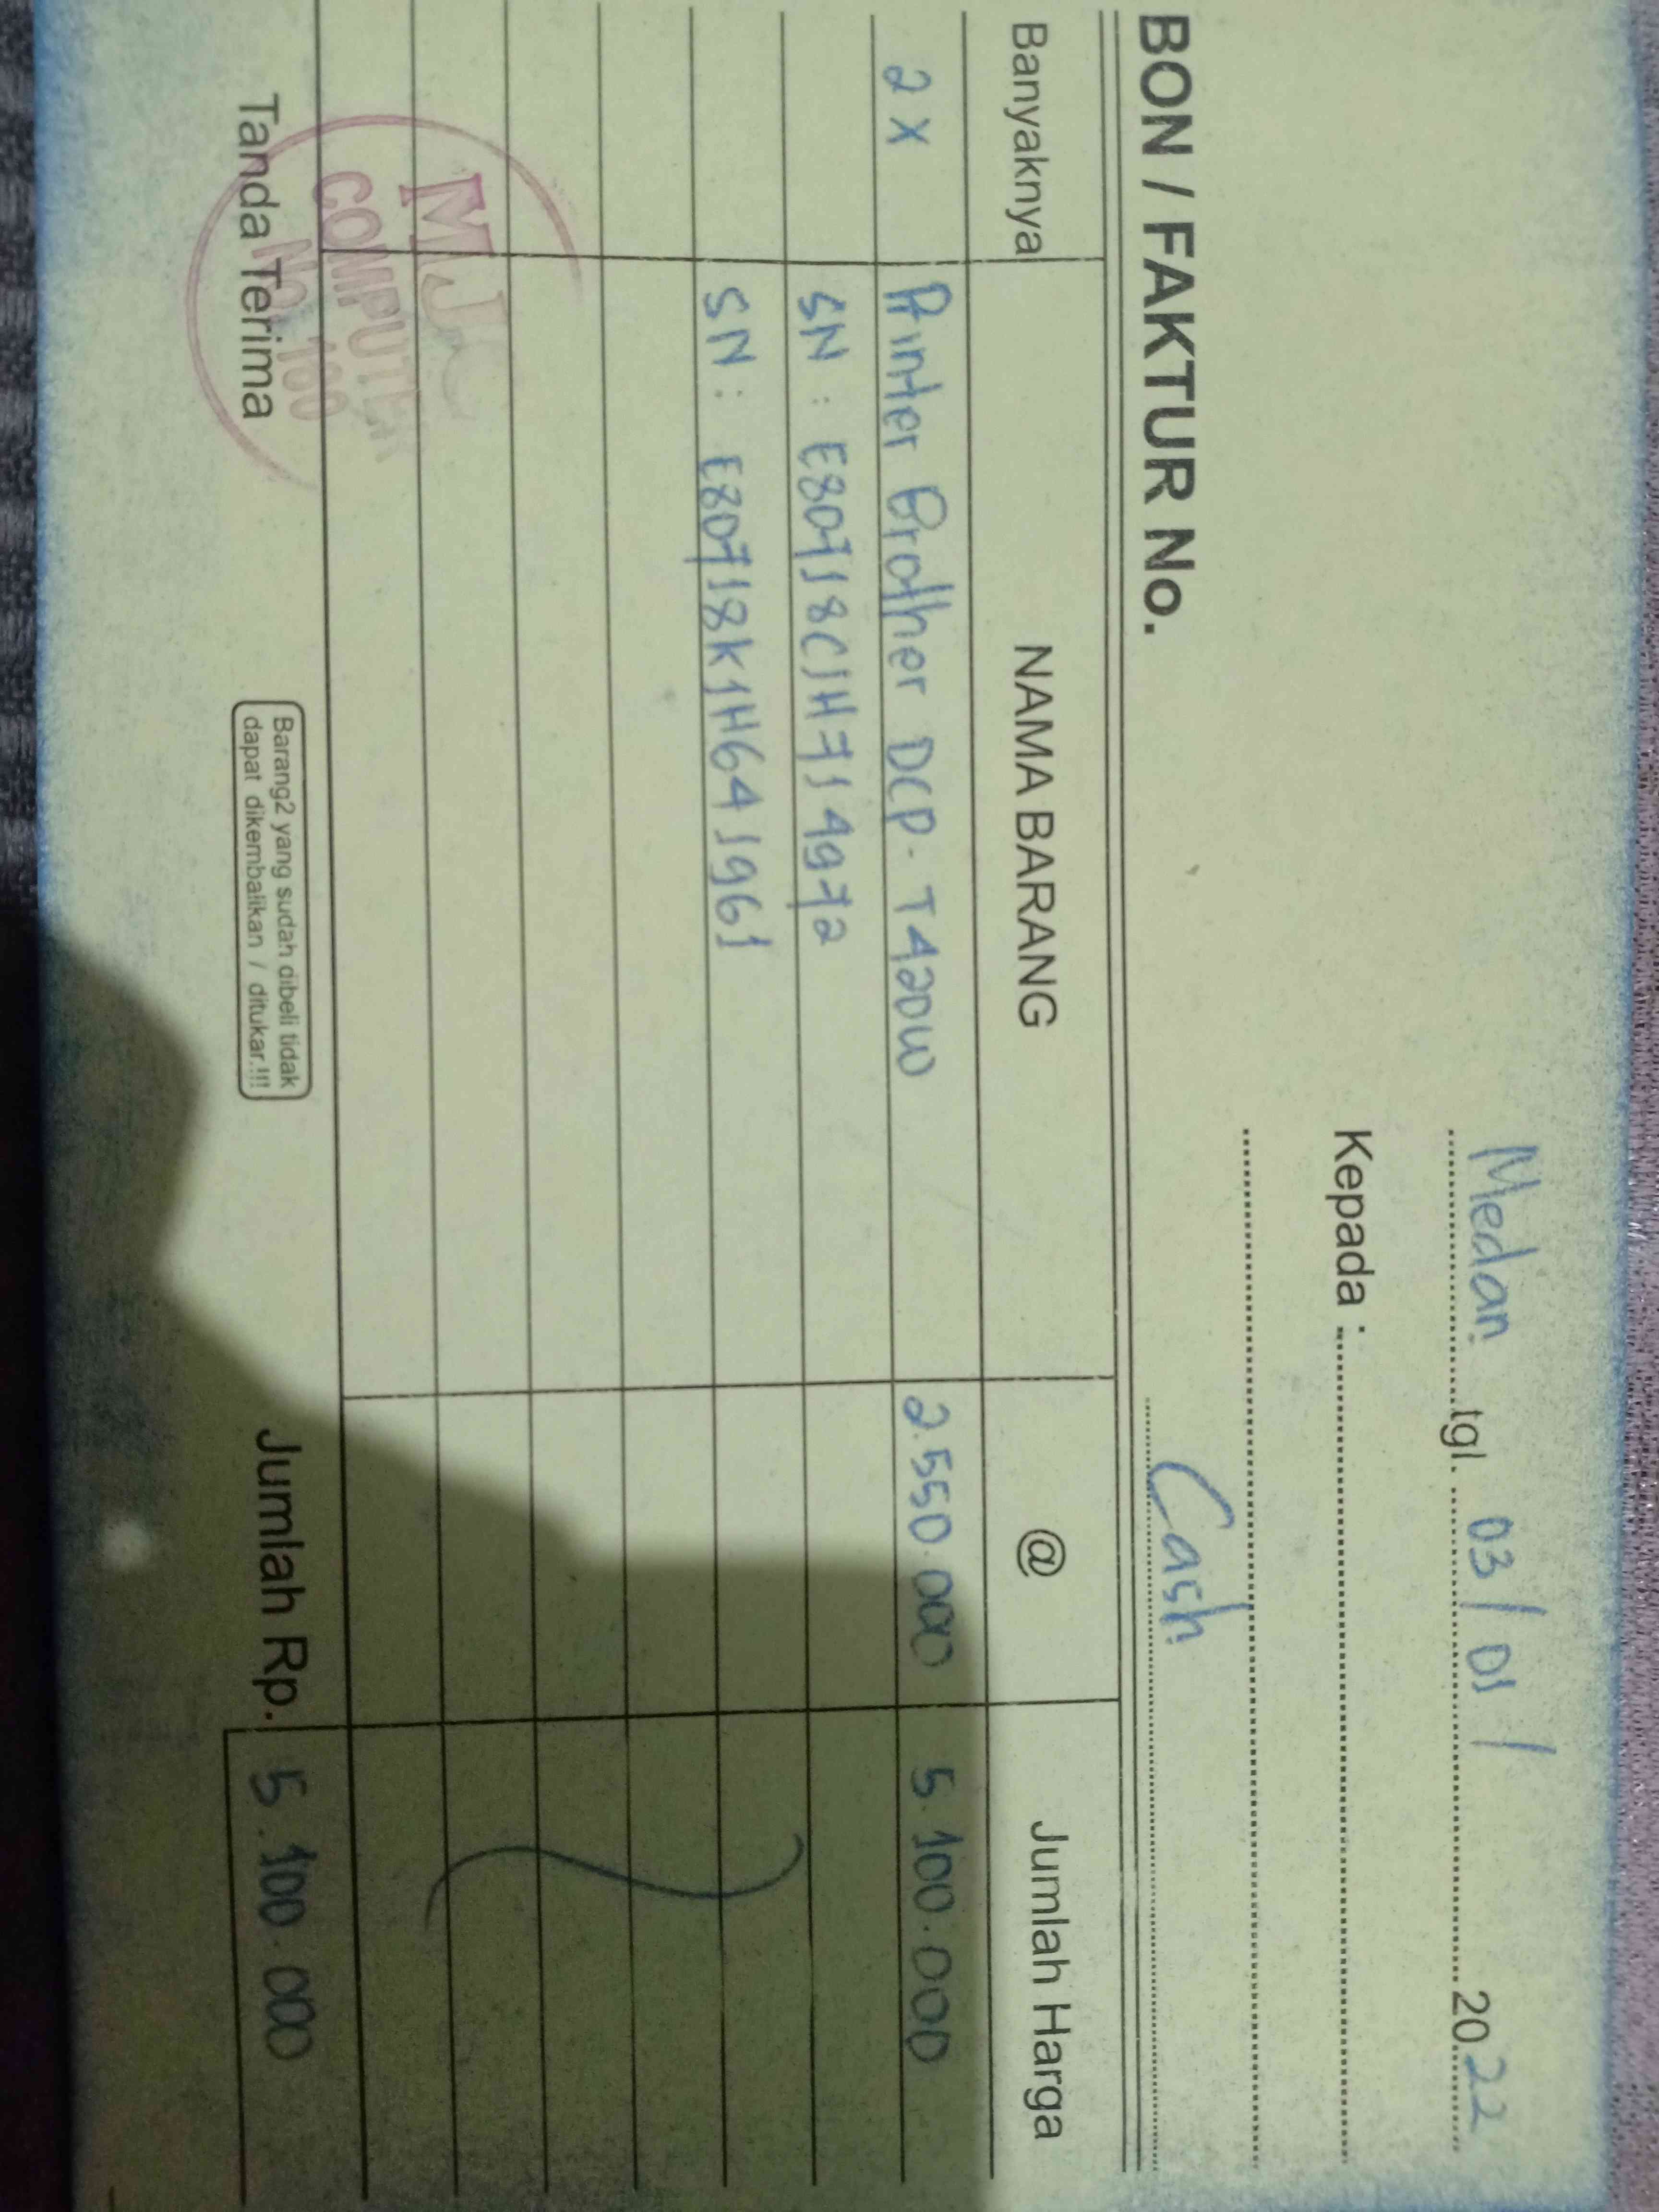 Medan tgl. 03 / 01 / 2022
Kepada :
Cash
BON / FAKTUR No.
Banyaknya NAMA BARANG @ Jumlah Harga
2 X Printer Brother DCP-T420W 2.550.000 5.100.000
SN : E80718C1H714972
SN : E80718K1H641961
MJ
COMPUTER
No 100
Tanda Terima
Barang2 yang sudah dibeli tidak
dapat dikembalikan / ditukar.!!!
Jumlah Rp. 5.100.000